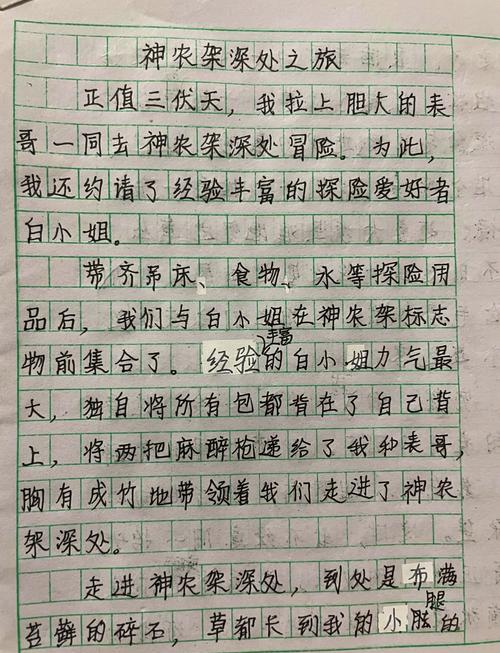 神农架深处之旅
正值三伏天，我拉上胆大的表
哥一同去神农架深处冒险。为此，
我还约请了经验丰富的探险爱好者
白小姐。
带齐吊床、食物、水等探险用
品后，我们与白小姐在神农架标志
物前集合了。经验丰富的白小姐力气最
大，独自将所有包都背在了自己背
上，将两把麻醉枪递给了我和表哥，
胸有成竹地带领着我们走进了神农
架深处。
走进神农架深处，到处是布满
苔藓的碎石，草都长到我的小腿的